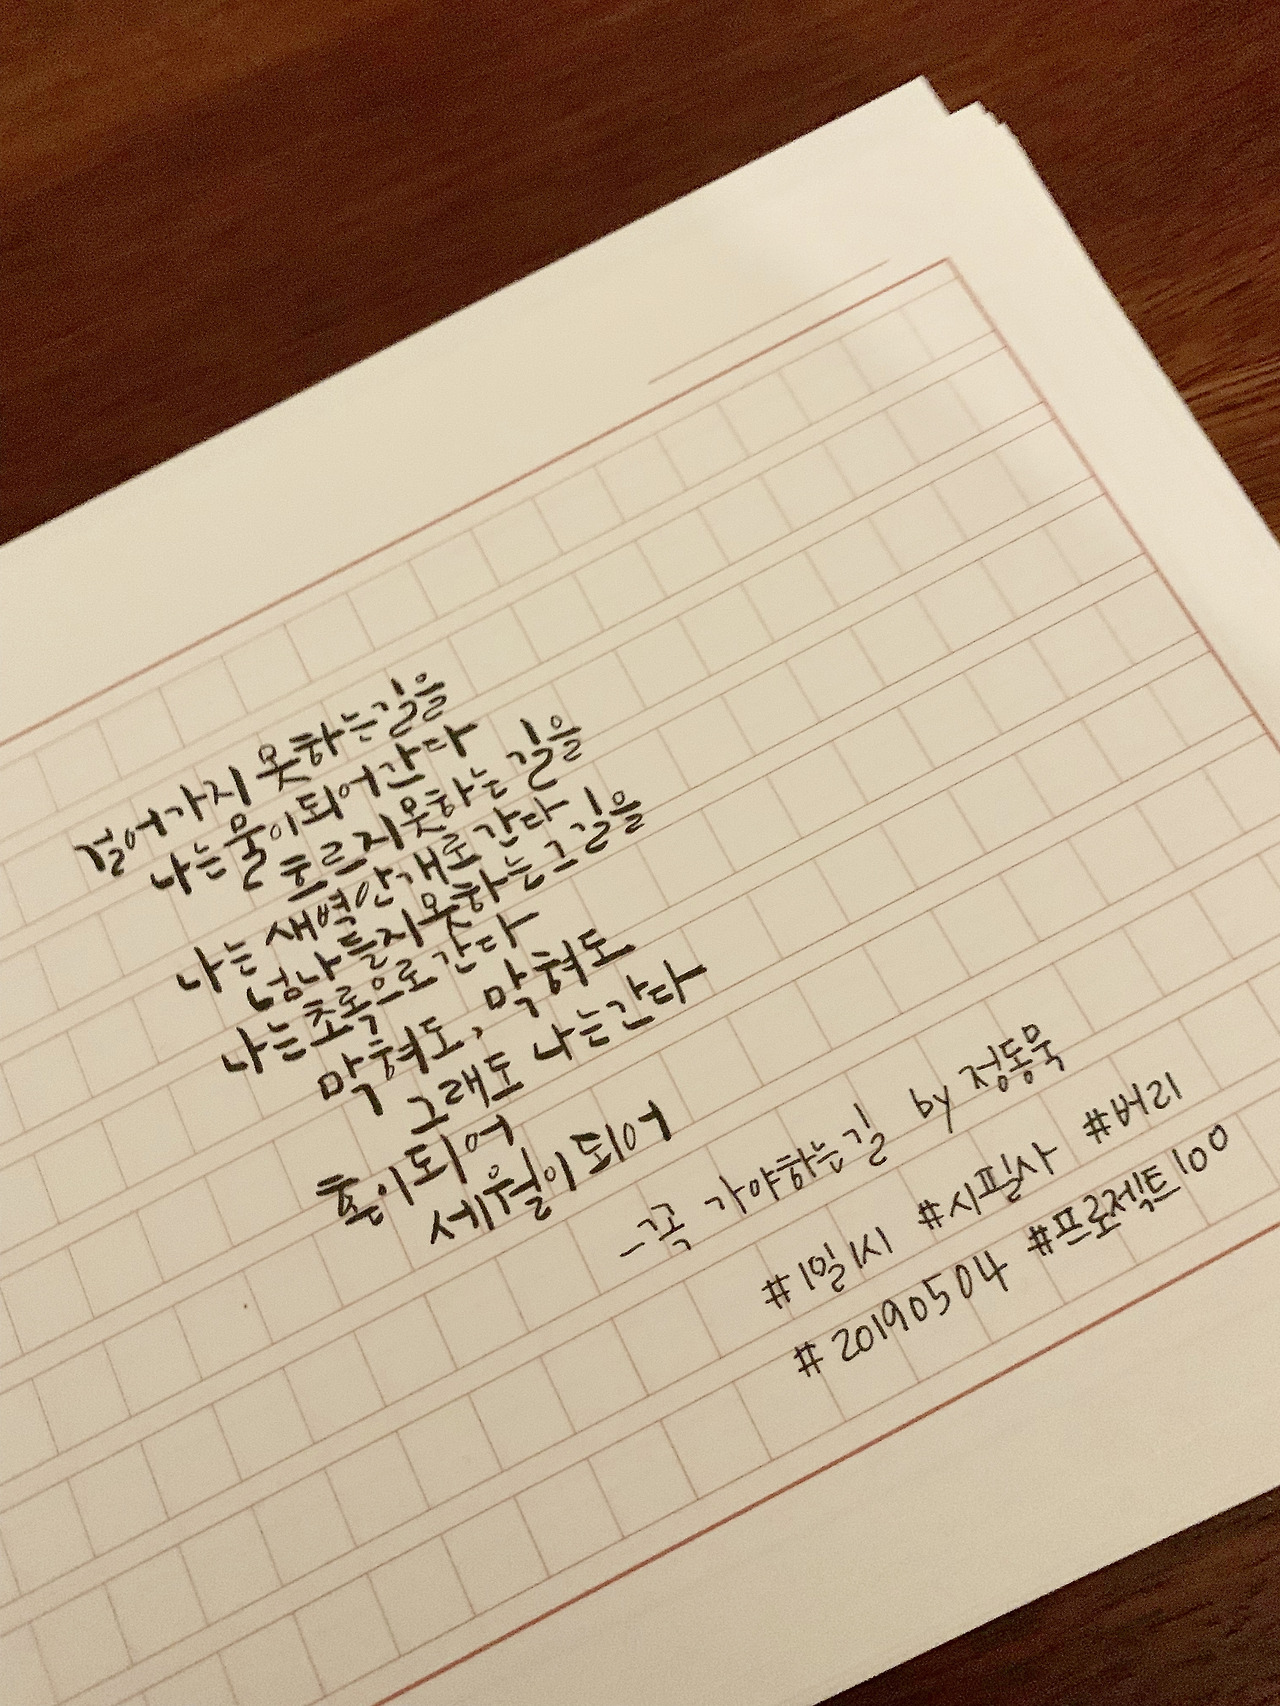 걸어가지 못하는 길을
나는 물이 되어 간다
흐르지 못하는 길을
나는 새벽안개로 간다
넘나들지 못하는 그 길을
나는 초록으로 간다
막혀도, 막혀도
그래도 나는 간다
혼이 되어
세월이 되어
- 꼭 가야하는 길 by 정동묵
#1일1시 #시필사 #버리
#20190504 #프로젝트100